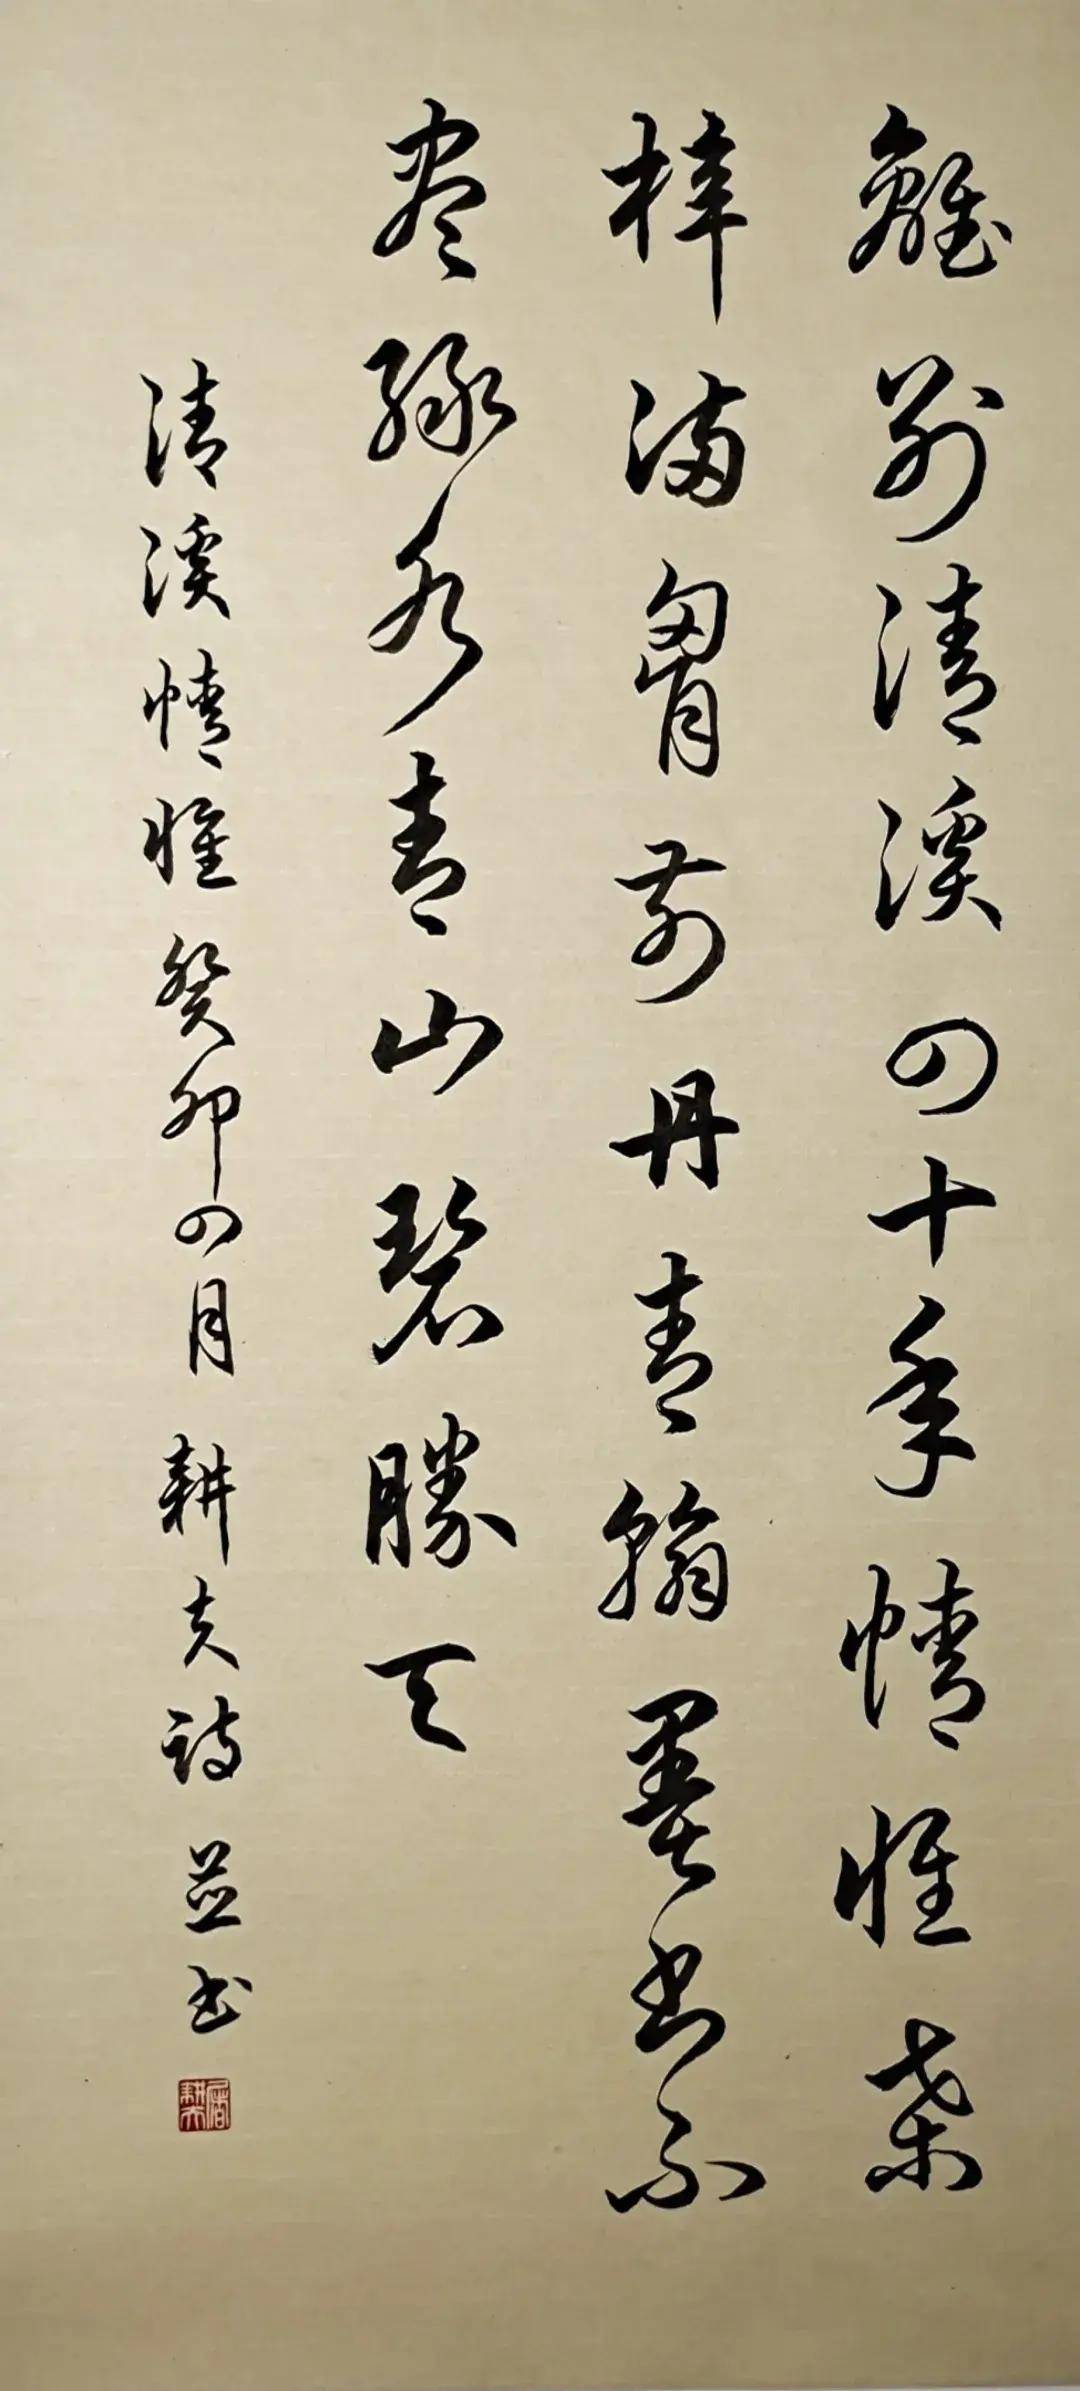 離別清溪四十年情惟桑
梓滿胷前丹青翰墨書不
盡綠水青山碧勝天
清溪情惟癸卯四月 耕夫詩並書